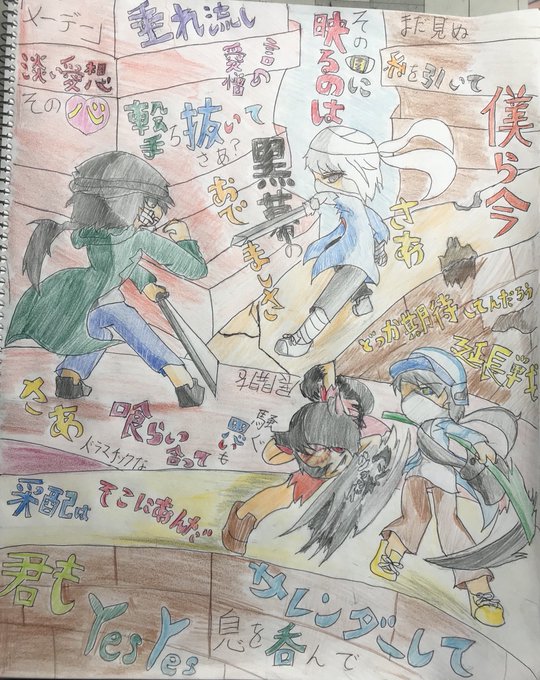 メーデン
淡い愛想
垂れ流し
言の愛憎
その心
撃ち抜いて
さあ?
まだ見ぬ
糸を引いて
黒幕の
おでましさ
その目に
映るのは
僕ら今
さあ
さあ
喰らい合って
延長戦
サレンダーして
ドラスチックな
どっか期待してんだろう
君も
YesYes
息を呑んで
采配は
そこにあんだ